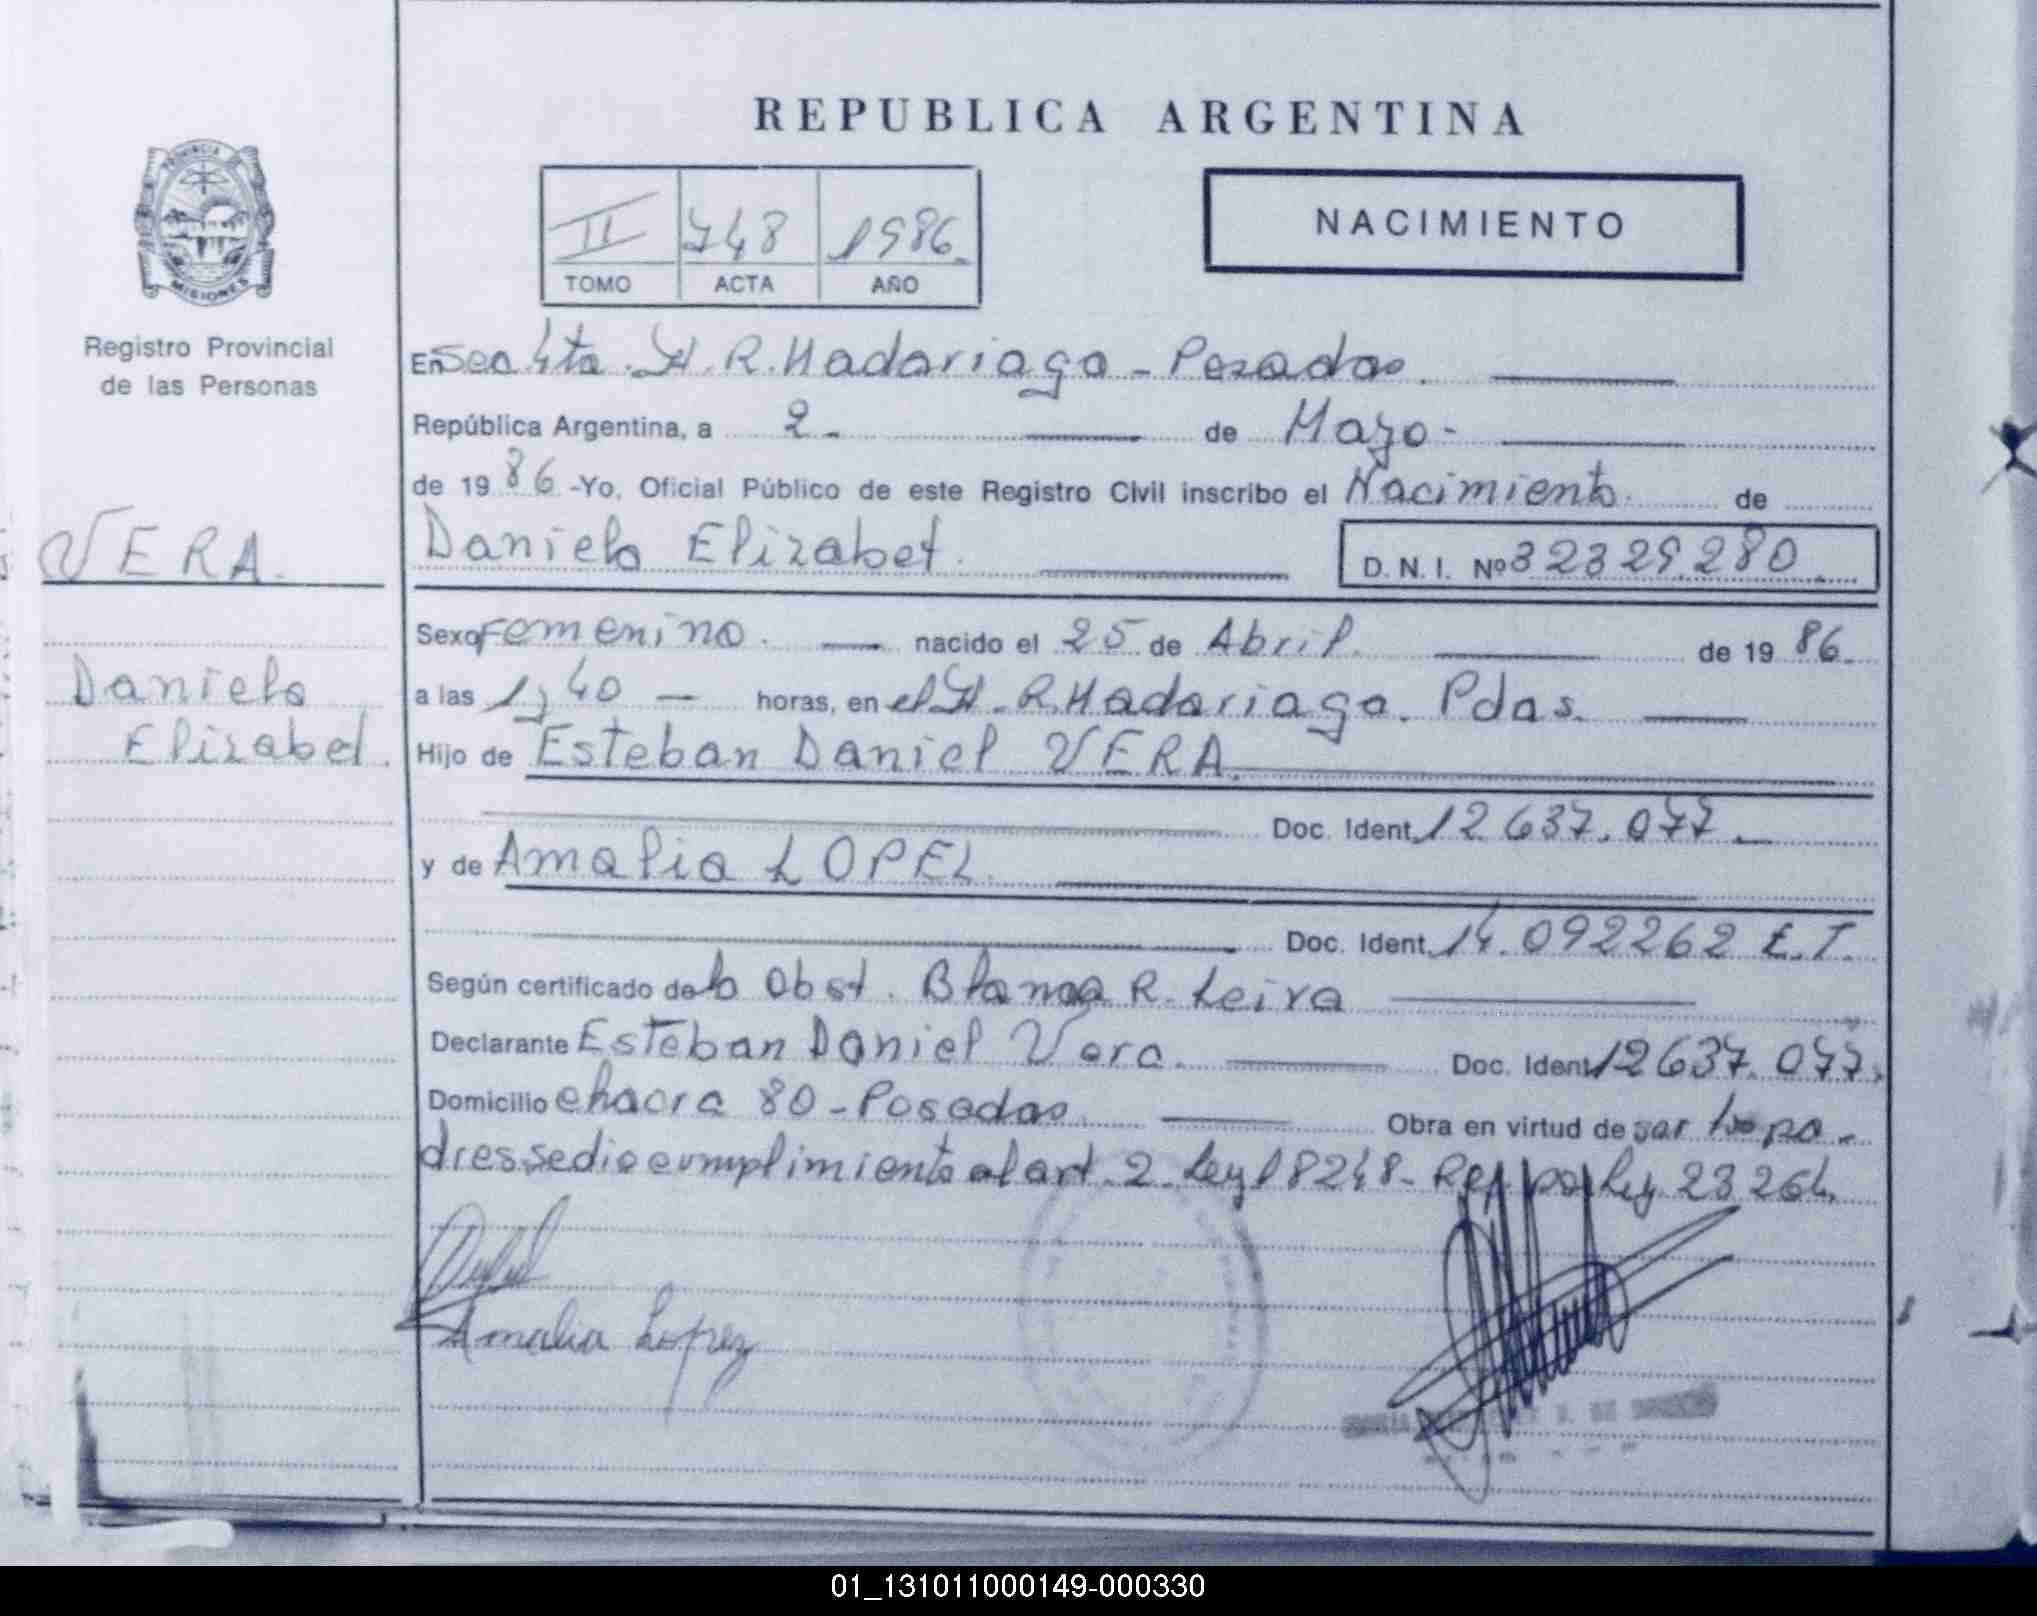 REPUBLICA ARGENTINA
II 748 1986
TOMO ACTA AÑO
NACIMIENTO
PROVINCIA
MISIONES
Registro Provincial
de las Personas
VERA.
Daniela
Elizabet.
En Sec 4ta. H. R. Madariaga - Posadas.
República Argentina, a 2 - de Mayo -
de 19 86 -Yo, Oficial Público de este Registro Civil inscribo el Nacimiento. de
Daniela Elizabet. D.N.I. Nº 32329.280
Sexo Femenino. nacido el 25 de Abril. de 19 86.
a las 1,40 — horas, en el H. R. Madariaga. Pdas.
Hijo de Esteban Daniel VERA.
Doc. Ident. 12.637.077.
y de Amalia LOPEZ.
Doc. Ident. 14.092262 E.T.
Según certificado de la Obst. Blanca R. Leiva
Declarante Esteban Daniel Vera. Doc. Ident. 12637.077.
Domicilio chacra 80 - Posadas. Obra en virtud de ser los pa-
dres, se dio cumplimiento al art. 2. Ley 18248. Rep. por Ley 23264.
Amalia Lopez
01_131011000149-000330